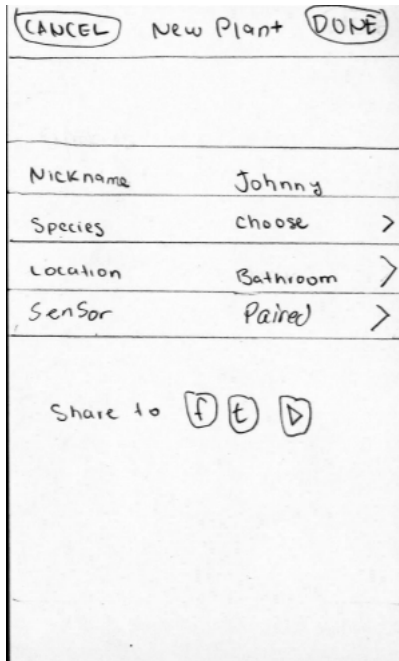 CANCEL New Plant DONE
Nickname Johnny
Species choose >
Location Bathroom >
Sensor Paired >
Share to f t